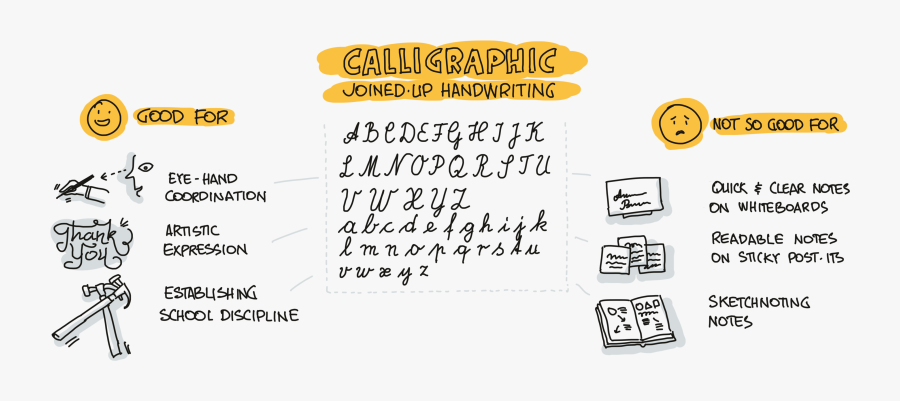 CALLIGRAPHIC
JOINED-UP HANDWRITING
GOOD FOR
EYE-HAND
COORDINATION
Thank
You
ARTISTIC
EXPRESSION
ESTABLISHING
SCHOOL DISCIPLINE
A B C D E F G H I J K
L M N O P Q R S T U
V W X Y Z
a b c d e f g h i j k
l m n o p q r s t u
v w x y z
NOT SO GOOD FOR
QUICK & CLEAR NOTES
ON WHITEBOARDS
READABLE NOTES
ON STICKY POST-ITS
SKETCHNOTING
NOTES